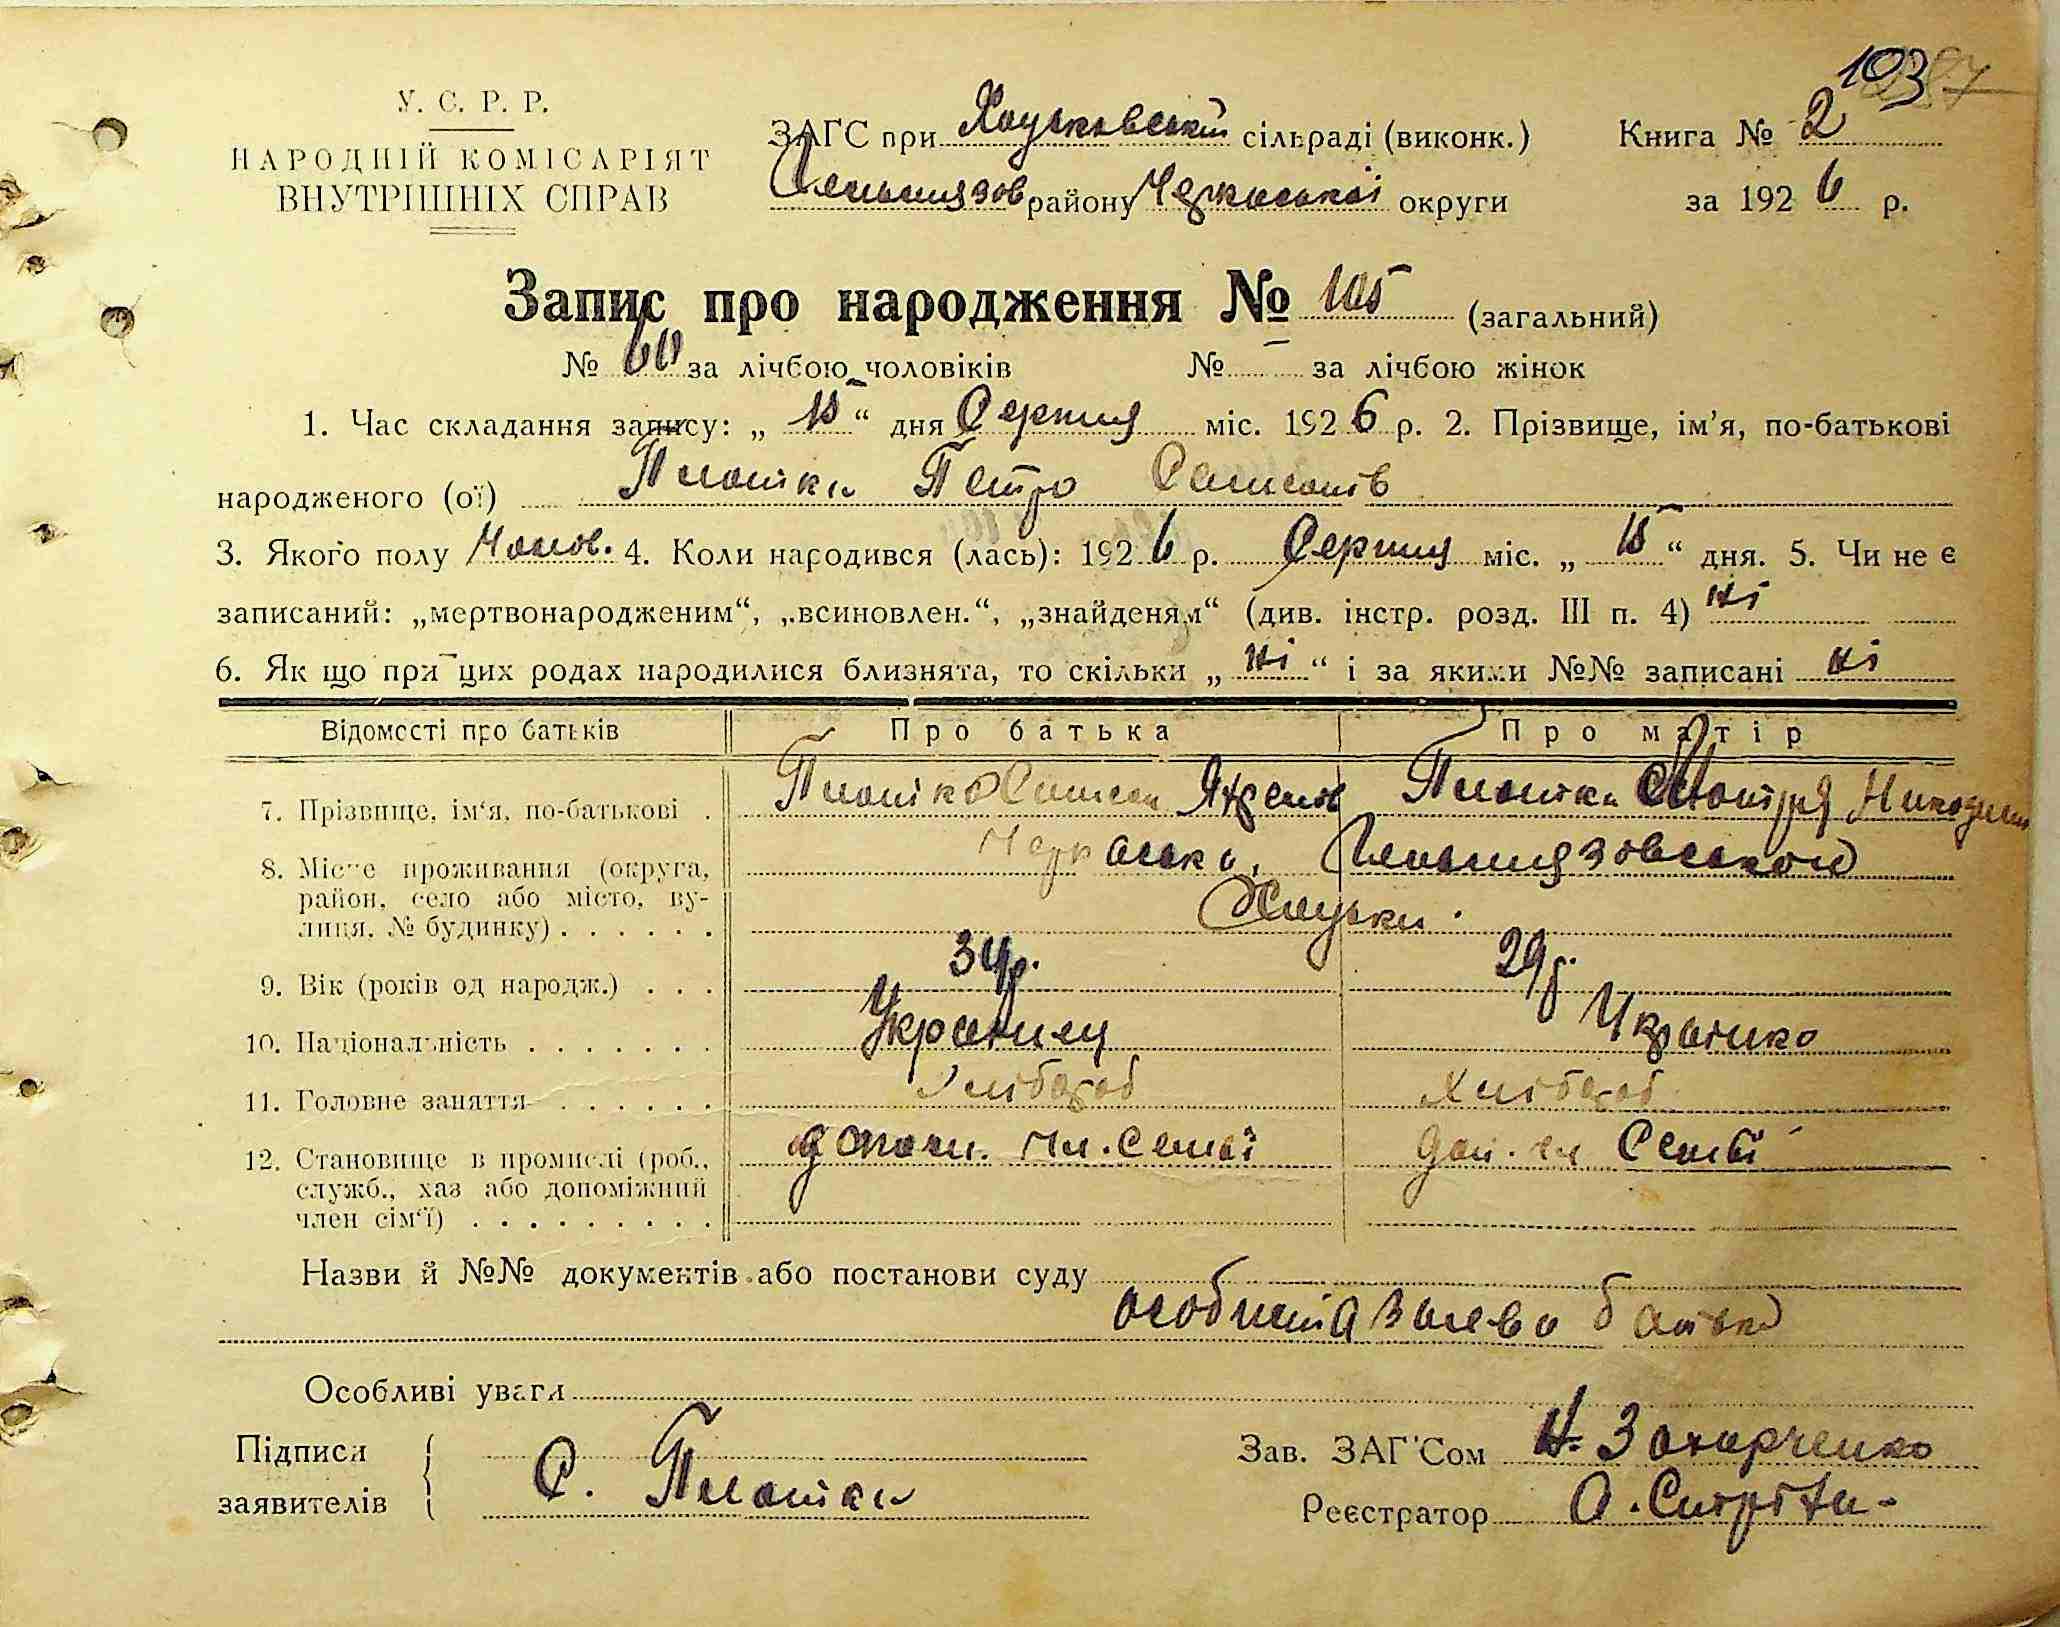 103
У. С. Р. Р.
НАРОДНІЙ КОМІСАРІЯТ
ВНУТРІШНІХ СПРАВ
ЗАГС при Хоцьковській сільраді (виконк.)
району Черкаської округи
Книга № 2
за 1926 р.
Запис про народження № 105 (загальний)
№ 60 за лічбою чоловіків № – за лічбою жінок
1. Час складання запису: „ 15 “ дня Серпня міс. 1926 р. 2. Прізвище, ім'я, по-батькові
народженого (ої) Плотка Петро Самсонів
3. Якого полу Чолов. 4. Коли народився (лась): 1926 р. Серпня міс. „ 15 “ дня. 5. Чи не є
записаний: „мертвонародженим“, „всиновлен.“, „знайденям“ (див. інстр. розд. III п. 4) ні
6. Як що при цих родах народилися близнята, то скільки „ ні “ і за якими №№ записані ні
Відомості про батьків Про батька Про матір
7. Прізвище, ім'я, по-батькові . Плотка Самсон Плотка Мотря
8. Місце проживання (округа,
район, село або місто, ву-
лиця, № будинку) . . . . . . Черкаська, Хоцьки.
9. Вік (років од народж.) . . . 34р. 29р.
10. Національність . . . . . . . Украінец Украінка
11. Головне заняття . . . . . . Хлібороб Хлібороб
12. Становище в промислі (роб.,
служб., хаз або допоміжний
член сім'ї) . . . . . . . . . допом. чл. семьї доп. чл Семьї
Назви й №№ документів або постанови суду
особиста заява батька
Особливі уваги
Підписи
заявителів С. Плотка
Зав. ЗАГ'Сом Н. Захарченко
Реєстратор О.